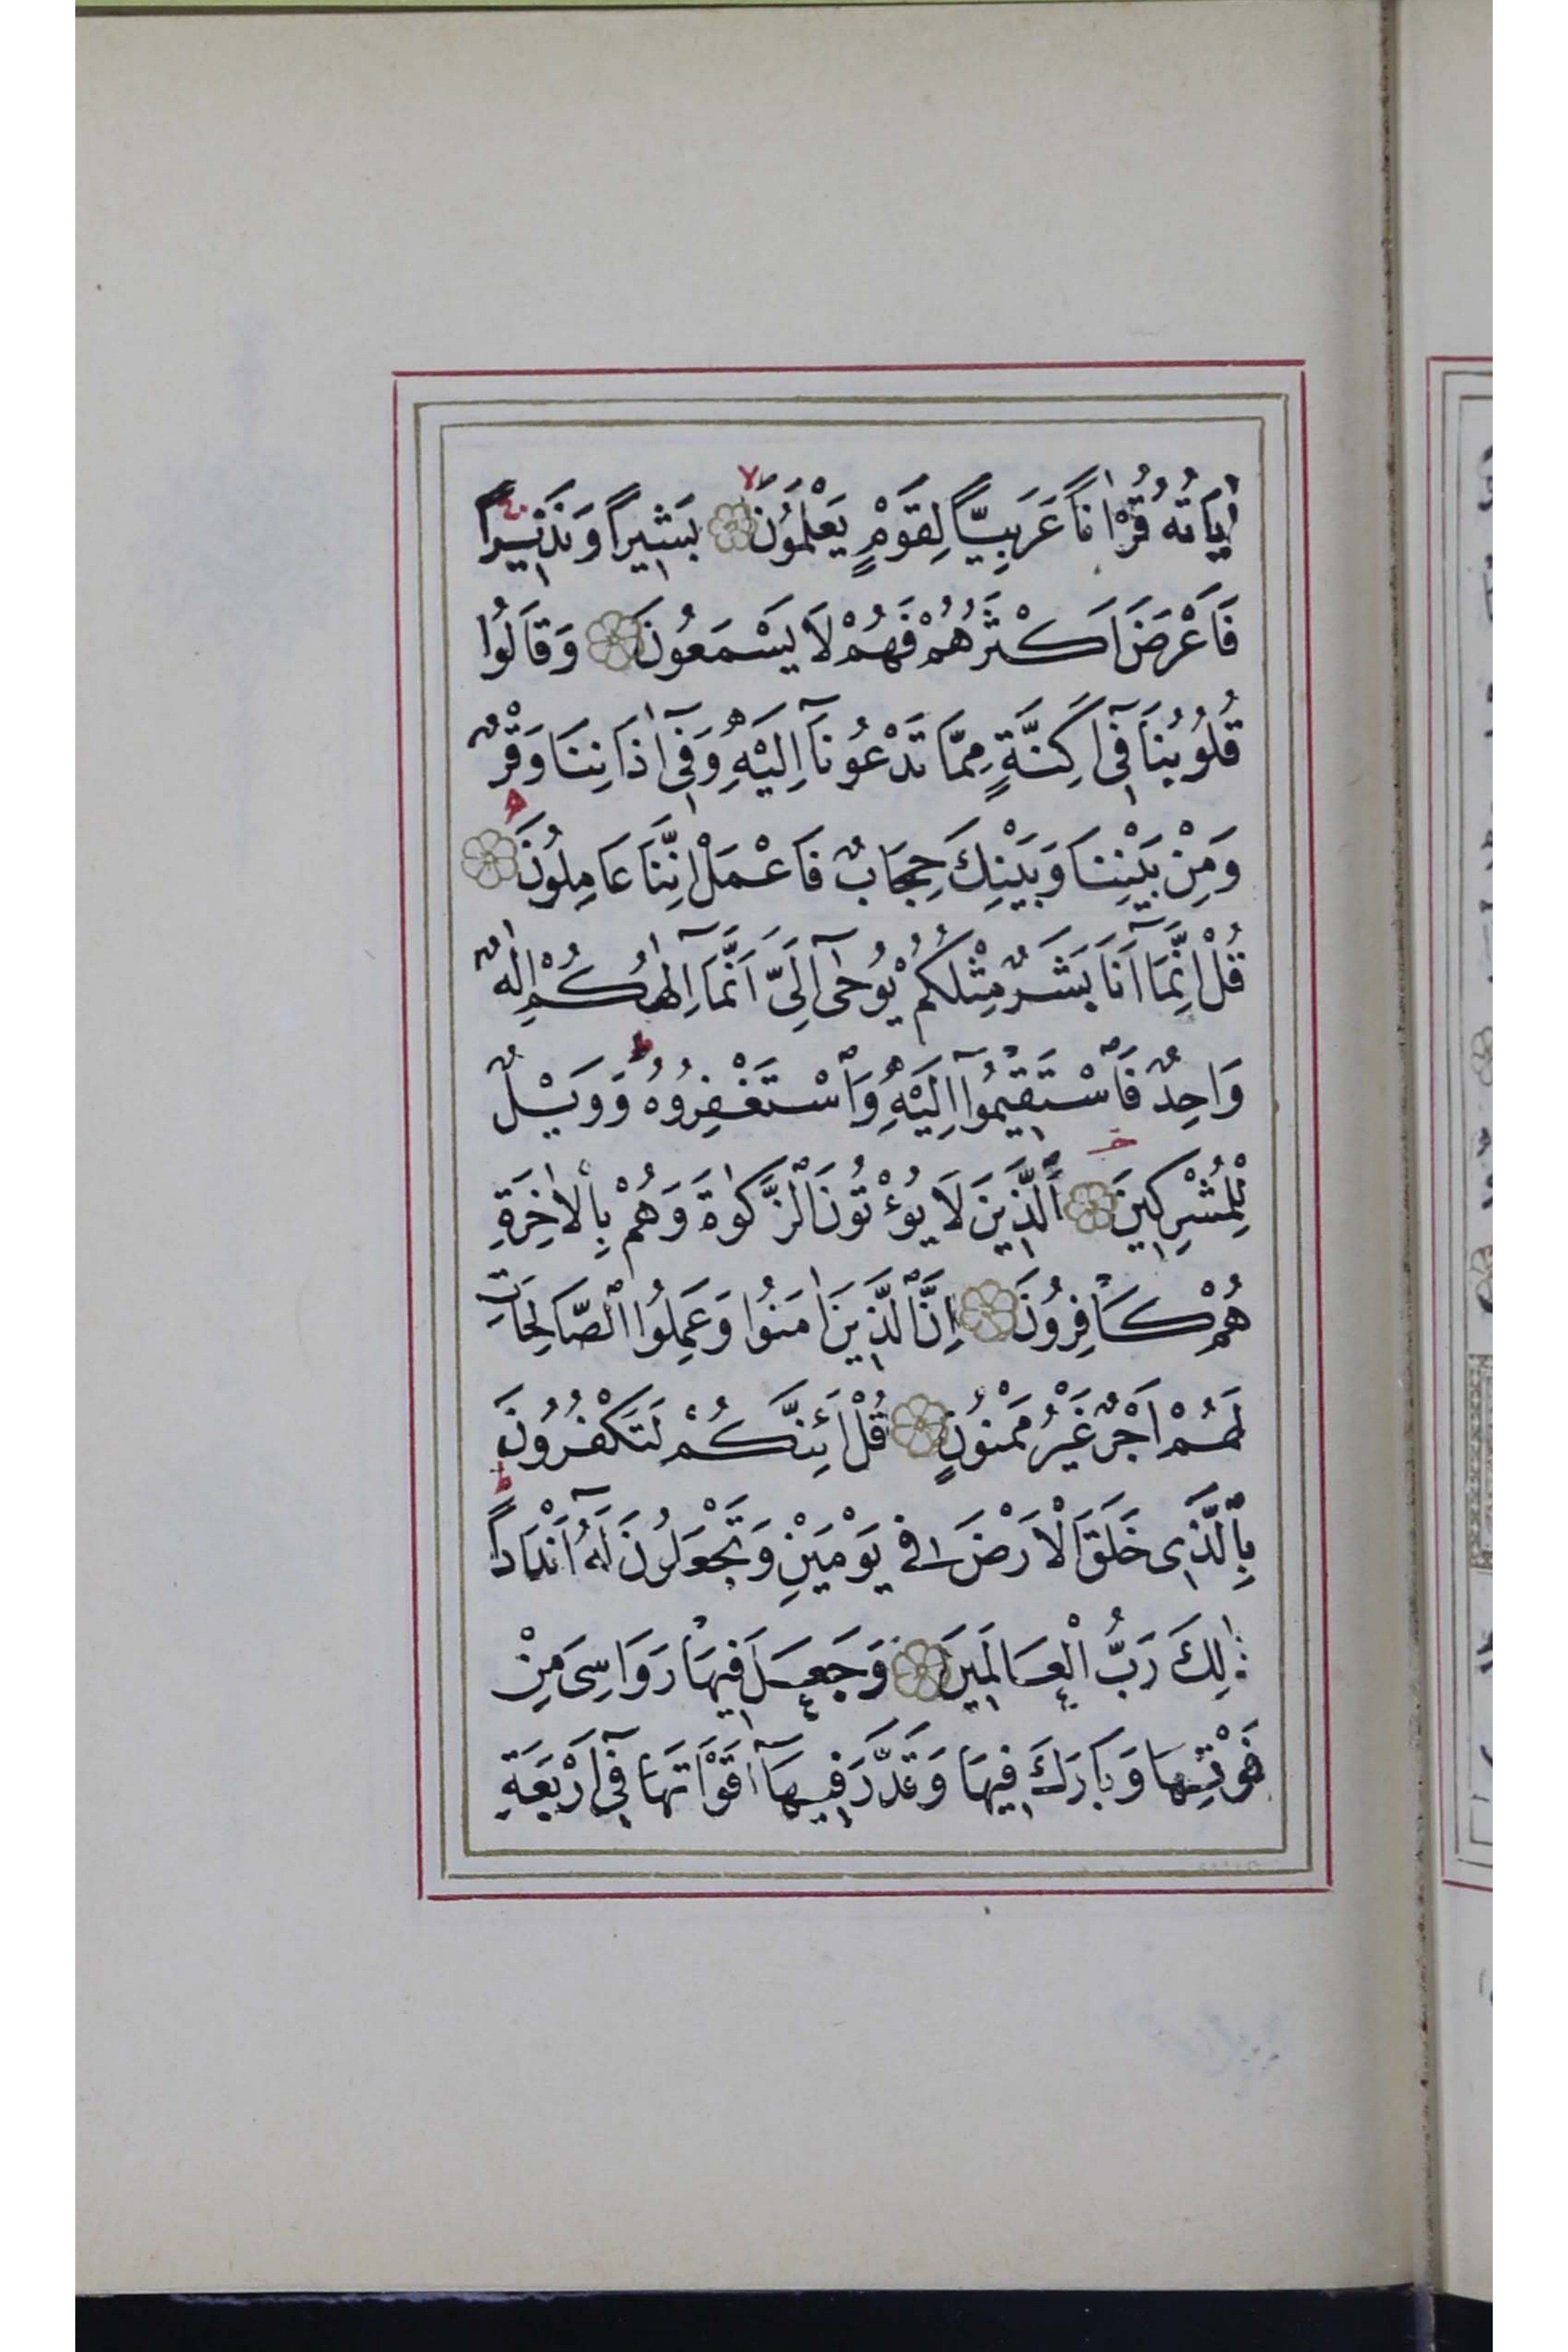 اٰيَاتُهُ قُرْاٰنًا عَرَبِيًّا لِقَوْمٍ يَعْلَمُونَ لا بَشِيرًا وَنَذِيرًا ج
فَاَعْرَضَ اَكْثَرُهُمْ فَهُمْ لَا يَسْمَعُونَ وَقَالُوا
قُلُوبُنَا فِٓى اَكِنَّةٍ مِمَّا تَدْعُونَٓا اِلَيْهِ وَفِٓى اٰذَانِنَا وَقْرٌ
وَمِنْ بَيْنِنَا وَبَيْنِكَ حِجَابٌ فَاعْمَلْ اِنَّنَا عَامِلُونَ
قُلْ اِنَّمَٓا اَنَا بَشَرٌ مِثْلُكُمْ يُوحٰٓى اِلَىَّ اَنَّمَٓا اِلٰهُكُمْ اِلٰهٌ
وَاحِدٌ فَاسْتَقِيمُٓوا اِلَيْهِ وَاسْتَغْفِرُوهُ ط وَوَيْلٌ
لِلْمُشْرِكِينَ اَلَّذِينَ لَا يُؤْتُونَ الزَّكٰوةَ وَهُمْ بِالْاٰخِرَةِ
هُمْ كَافِرُونَ اِنَّ الَّذِينَ اٰمَنُوا وَعَمِلُوا الصَّالِحَاتِ
لَهُمْ اَجْرٌ غَيْرُ مَمْنُونٍ قُلْ اَئِنَّكُمْ لَتَكْفُرُونَ
بِالَّذِى خَلَقَ الْاَرْضَ فِى يَوْمَيْنِ وَتَجْعَلُونَ لَهُٓ اَنْدَادًا ط
ذٰلِكَ رَبُّ الْعَالَمِينَ وَجَعَلَ فِيهَا رَوَاسِىَ مِنْ
فَوْقِهَا وَبَارَكَ فِيهَا وَقَدَّرَ فِيهَٓا اَقْوَاتَهَا فِٓى اَرْبَعَةِ